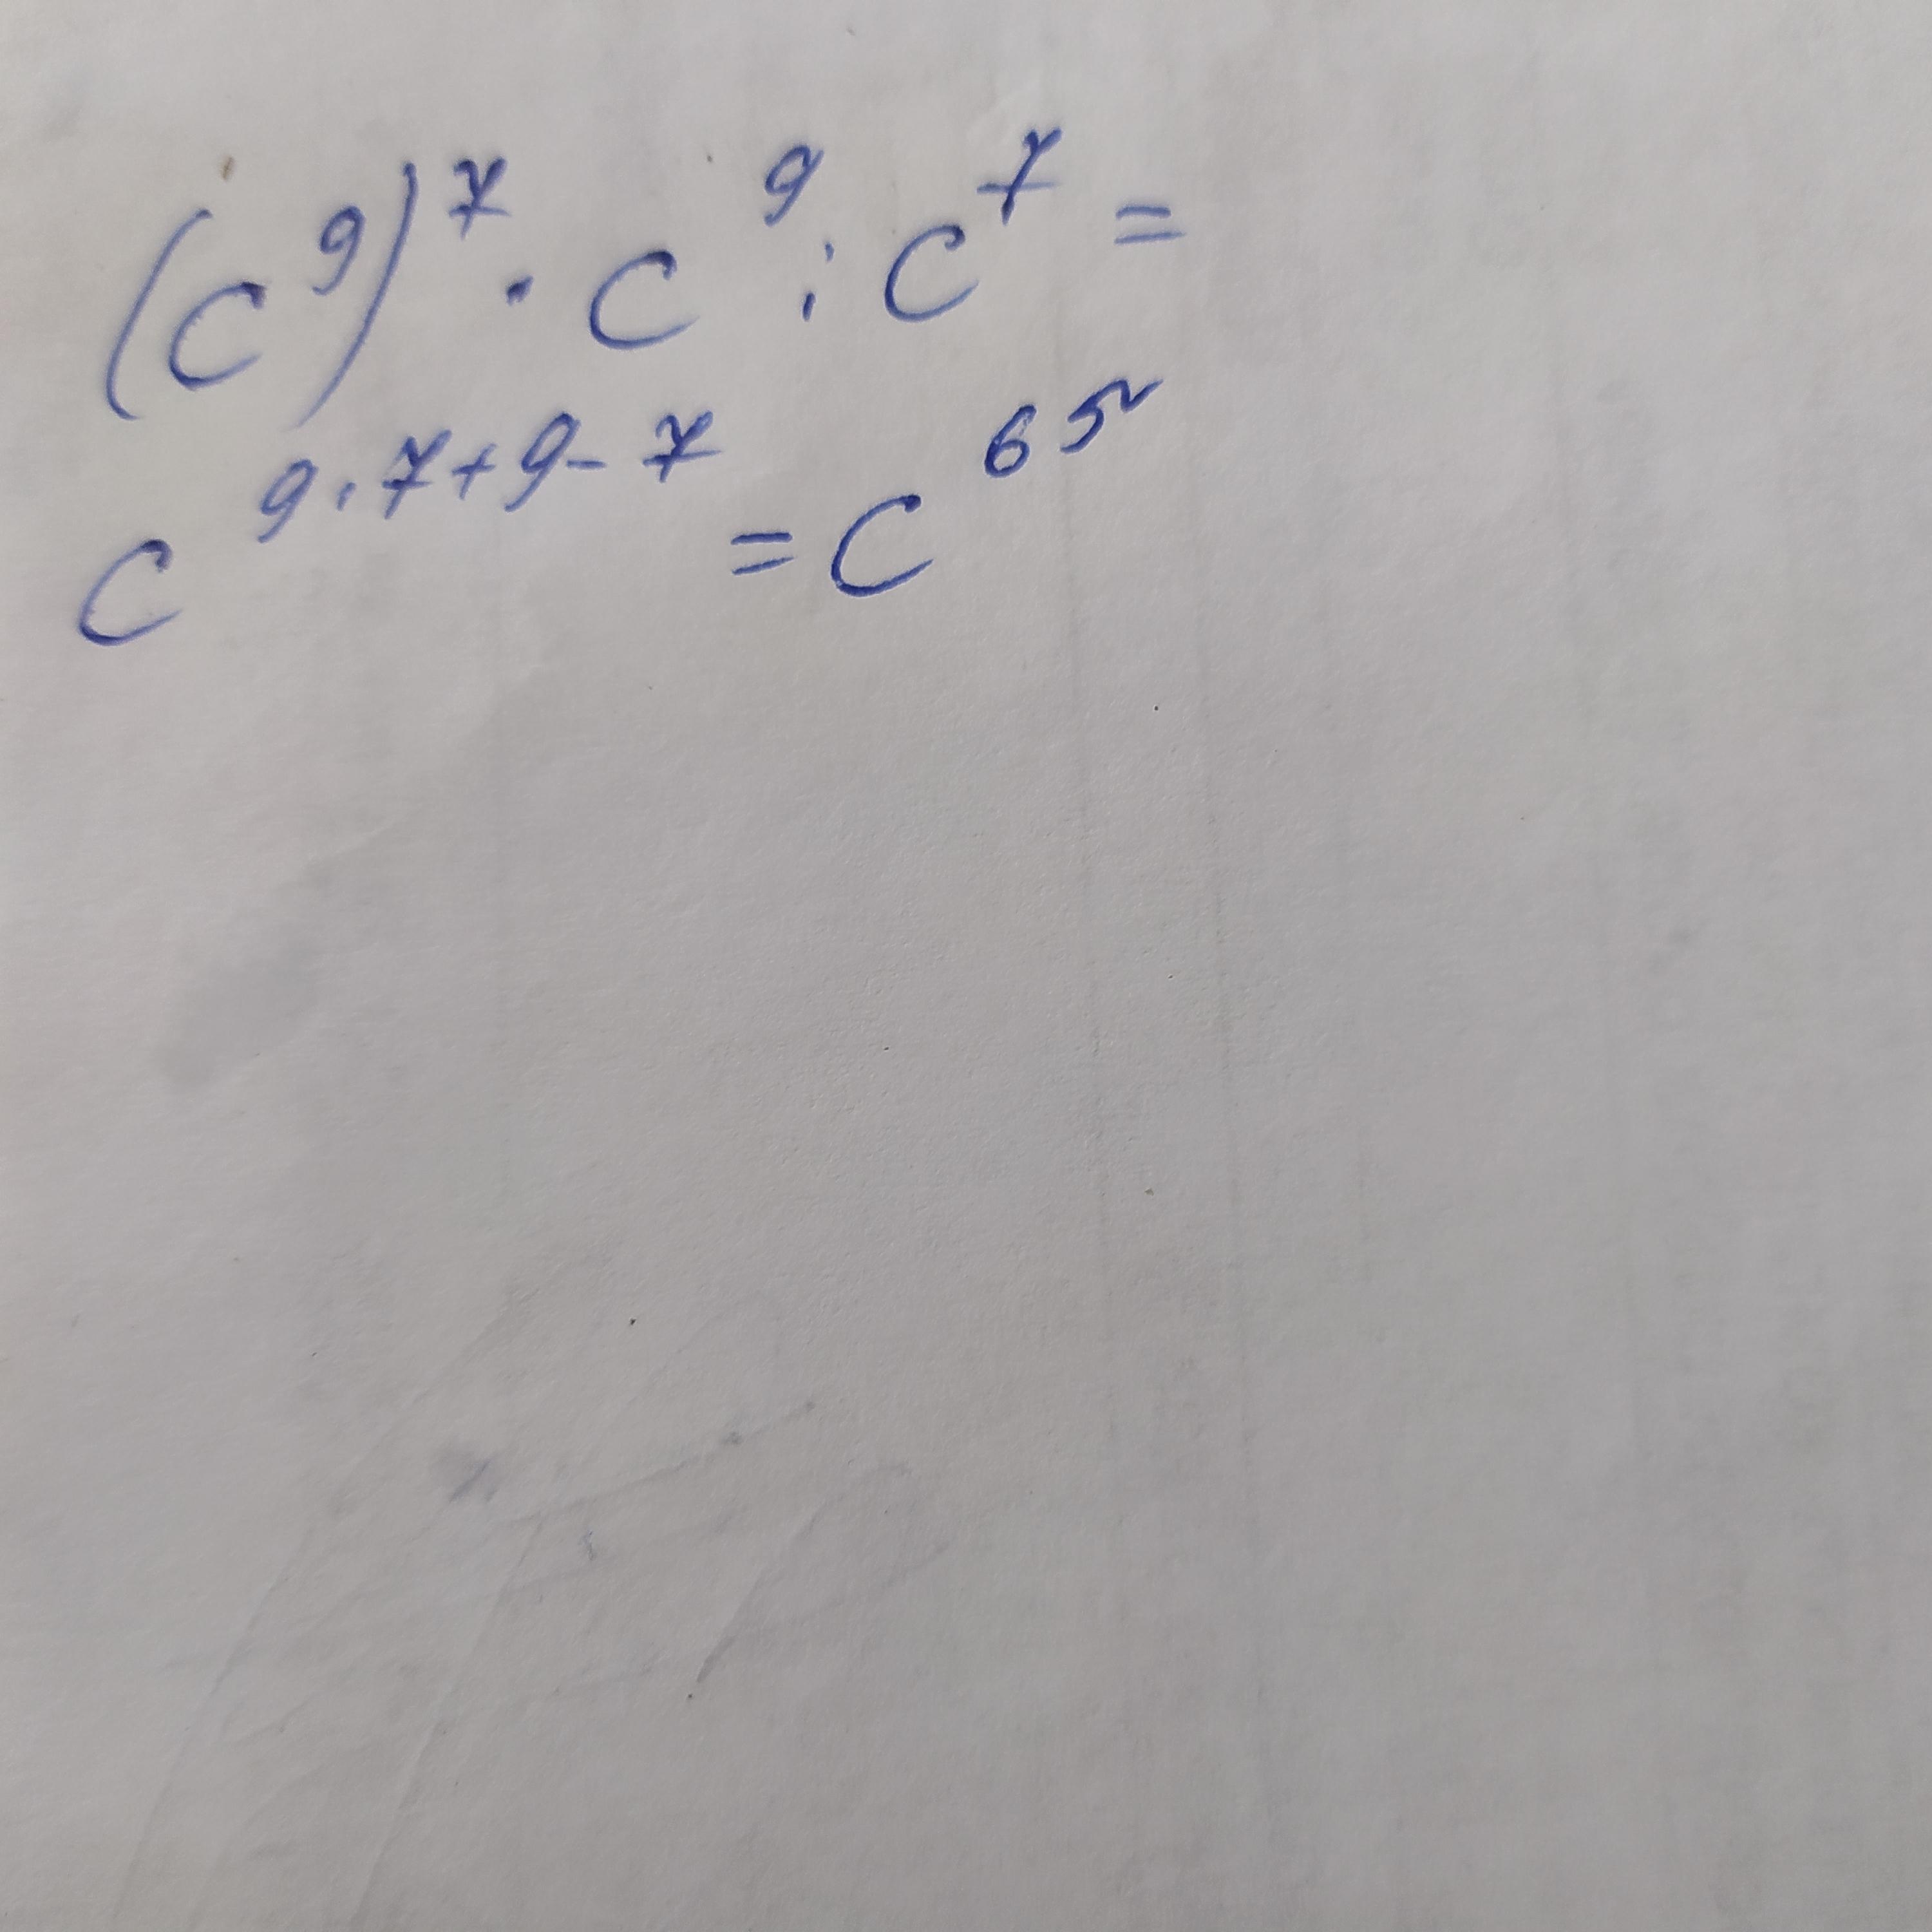 (c⁹)⁷ · c⁹ : c⁷ =
c⁹·⁷⁺⁹⁻⁷ = c⁶⁵